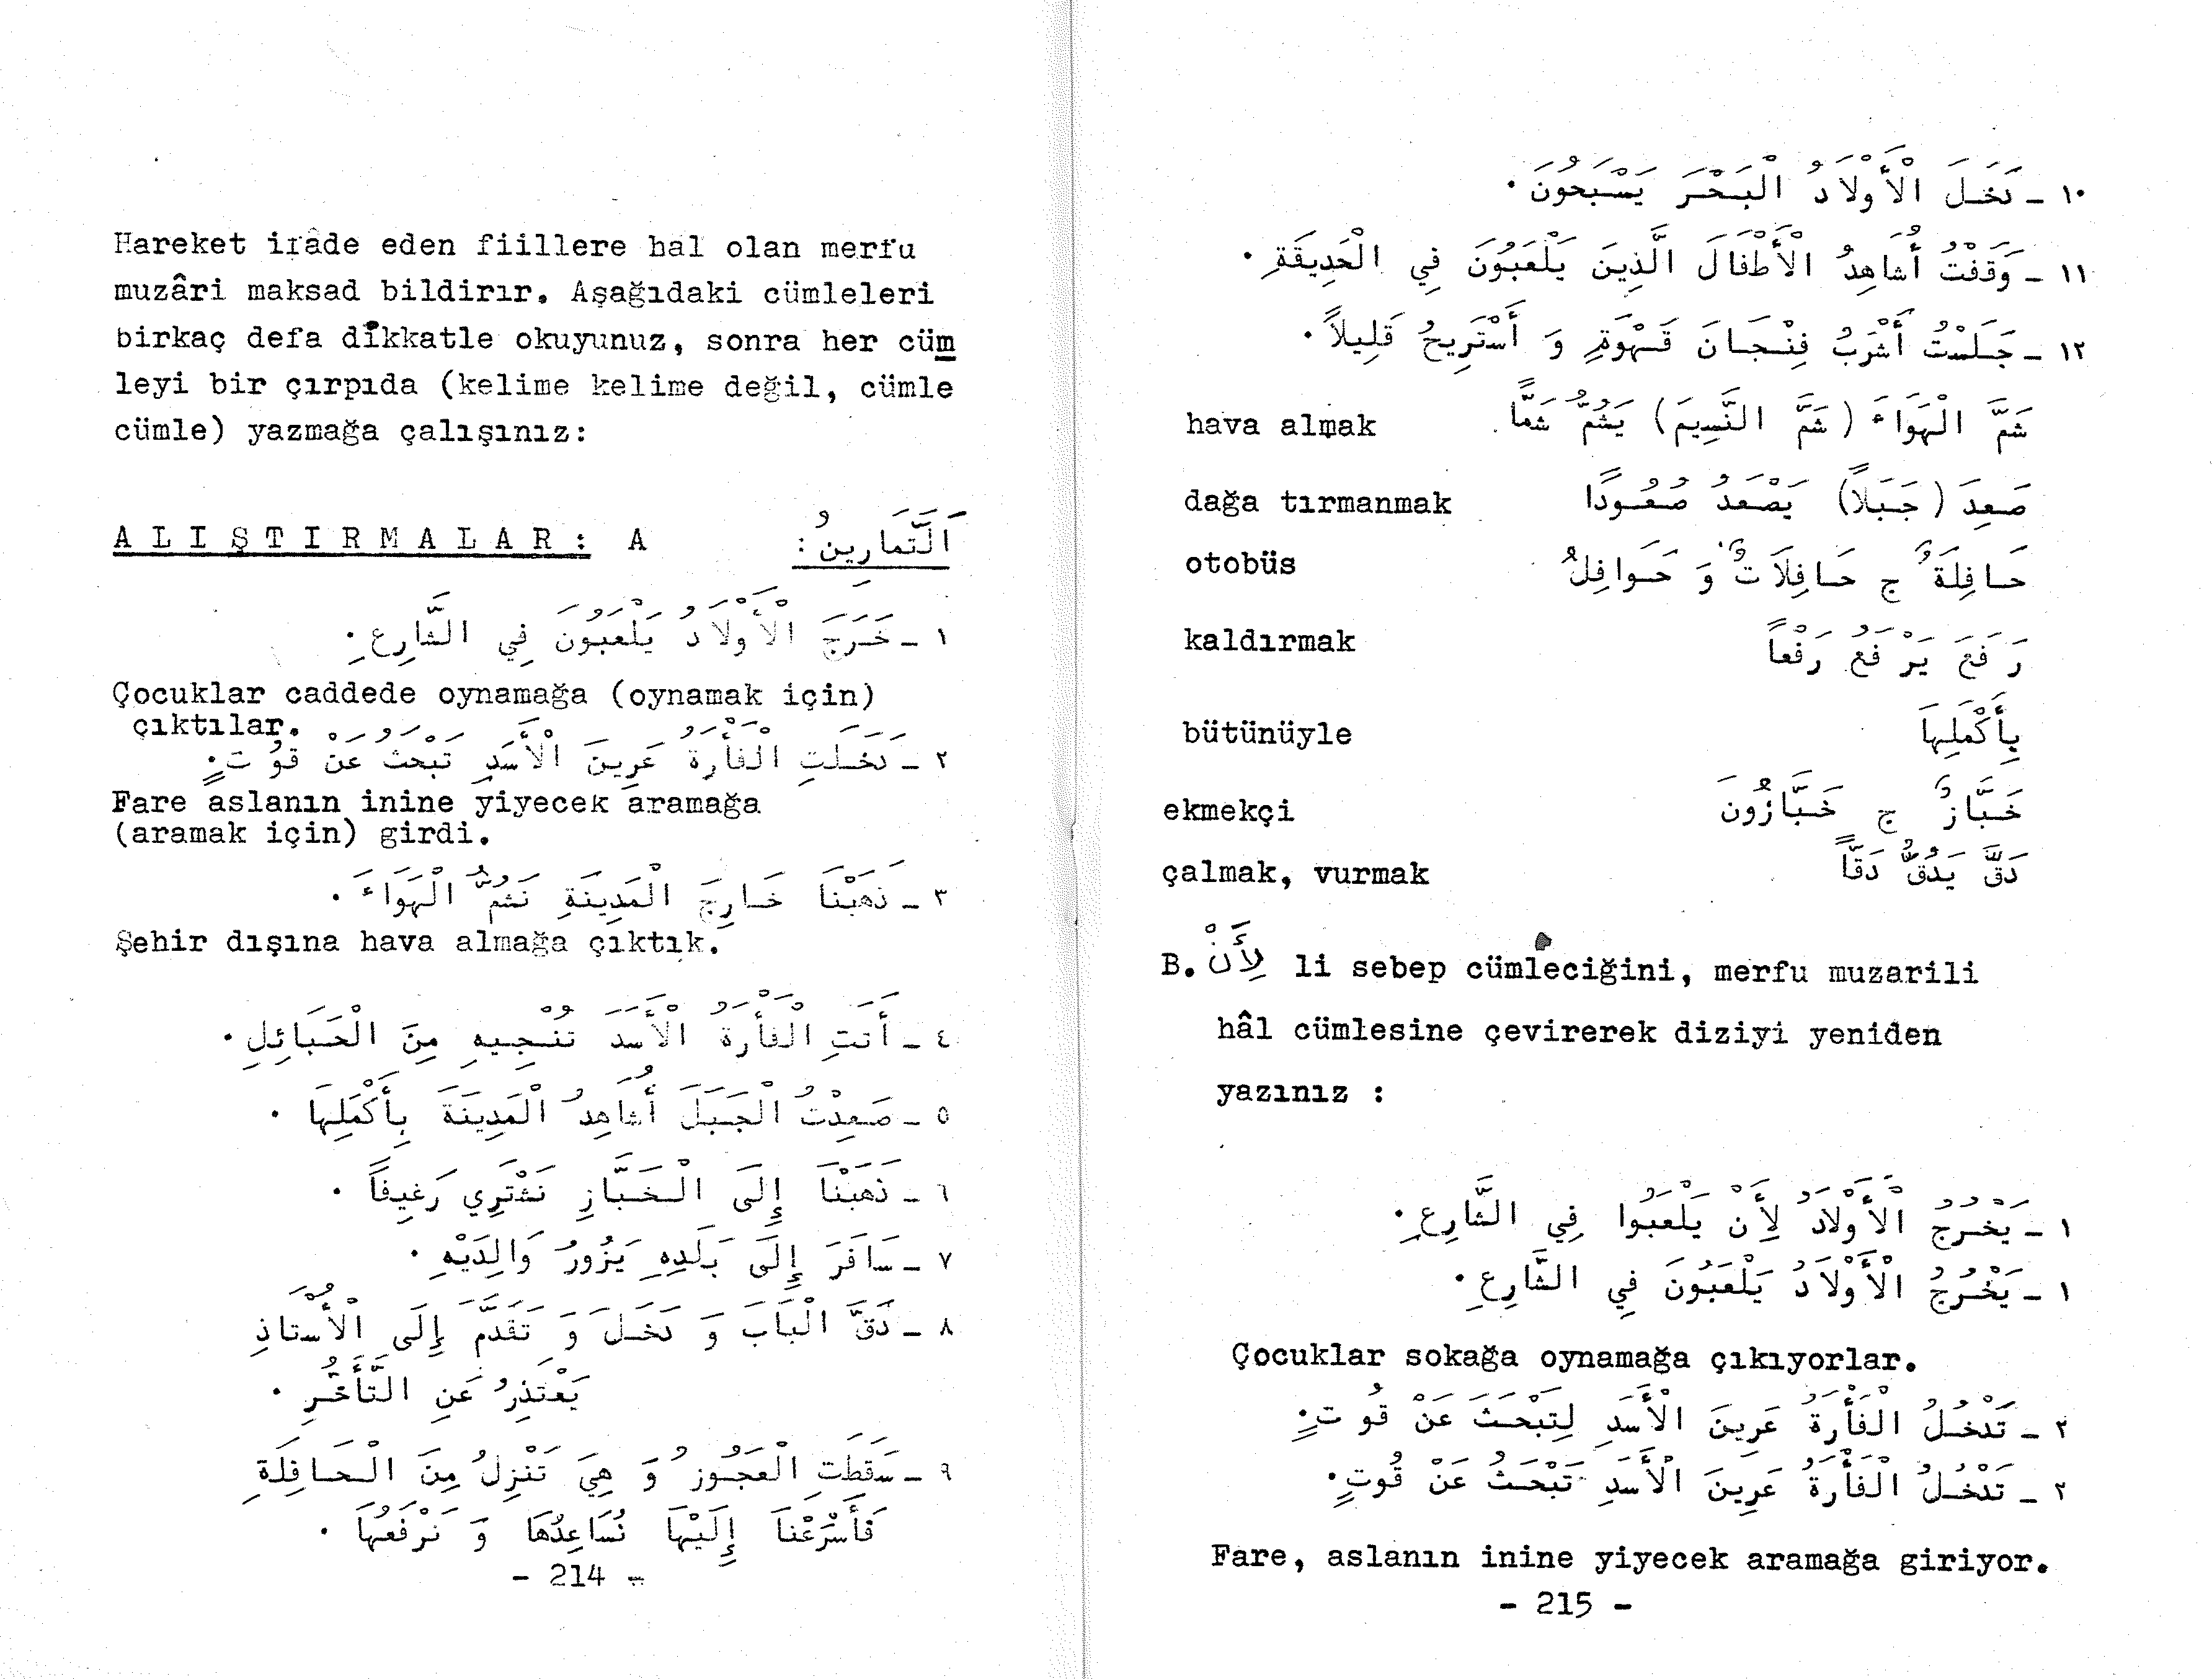 Hareket ifâde eden fiillere hal olan merfu
muzâri maksad bildirir. Aşağıdaki cümleleri
birkaç defa dikkatle okuyunuz, sonra her cüm
leyi bir çırpıda (kelime kelime değil, cümle
cümle) yazmağa çalışınız:
ALIŞTIRMALAR: A اَلتَّمَارِينُ :
١ - خَرَجَ الْأَوْلَادُ يَلْعَبُونَ فِي الشَّارِعِ.
Çocuklar caddede oynamağa (oynamak için)
çıktılar.
٢ - دَخَلَتِ الْفَأْرَةُ عَرِينَ الْأَسَدِ تَبْحَثُ عَنْ قُوتٍ.
Fare aslanın inine yiyecek aramağa
(aramak için) girdi.
٣ - ذَهَبْنَا خَارِجَ الْمَدِينَةِ نَشُمُّ الْهَوَاءَ.
Şehir dışına hava almağa çıktık.
٤ - أَتَتِ الْفَأْرَةُ الْأَسَدَ تُنْجِيهِ مِنَ الْحَبَائِلِ.
٥ - صَعِدْتُ الْجَبَلَ أُشَاهِدُ الْمَدِينَةَ بِأَكْمَلِهَا.
٦ - ذَهَبْنَا إِلَى الْخَبَّازِ نَشْتَرِي رَغِيفًا.
٧ - سَافَرَ إِلَى بَلَدِهِ يَزُورُ وَالِدَيْهِ.
٨ - دَقَّ الْبَابَ وَ دَخَلَ وَ تَقَدَّمَ إِلَى الْأُسْتَاذِ
يَعْتَذِرُ عَنِ التَّأَخُّرِ.
٩ - سَقَطَتِ الْعَجُوزُ وَ هِيَ تَنْزِلُ مِنَ الْحَافِلَةِ
فَأَسْرَعْنَا إِلَيْهَا نُسَاعِدُهَا وَ نَرْفَعُهَا.
- 214 -
١٠ - دَخَلَ الْأَوْلَادُ الْبَحْرَ يَسْبَحُونَ.
١١ - وَقَفْتُ أُشَاهِدُ الْأَطْفَالَ الَّذِينَ يَلْعَبُونَ فِي الْحَدِيقَةِ.
١٢ - جَلَسْتُ أَشْرَبُ فِنْجَانَ قَهْوَةٍ وَ أَسْتَرِيحُ قَلِيلاً.
hava almak شَمَّ الْهَوَاءَ (شَمَّ النَّسِيمَ) يَشُمُّ شَمًّا
dağa tırmanmak صَعِدَ (جَبَلاً) يَصْعَدُ صُعُودًا
otobüs حَافِلَةٌ ج حَافِلَاتٌ وَ حَوَافِلُ
kaldırmak رَفَعَ يَرْفَعُ رَفْعاً
bütünüyle بِأَكْمَلِهَا
ekmekçi خَبَّازٌ ج خَبَّازُونَ
çalmak, vurmak دَقَّ يَدُقُّ دَقًّا
B. لِأَنْ li sebep cümleciğini, merfu muzarili
hâl cümlesine çevirerek diziyi yeniden
yazınız :
١ - يَخْرُجُ الْأَوْلَادُ لِأَنْ يَلْعَبُوا فِي الشَّارِعِ.
١ - يَخْرُجُ الْأَوْلَادُ يَلْعَبُونَ فِي الشَّارِعِ.
Çocuklar sokağa oynamağa çıkıyorlar.
٢ - تَدْخُلُ الْفَأْرَةُ عَرِينَ الْأَسَدِ لِتَبْحَثَ عَنْ قُوتٍ.
٢ - تَدْخُلُ الْفَأْرَةُ عَرِينَ الْأَسَدِ تَبْحَثُ عَنْ قُوتٍ.
Fare, aslanın inine yiyecek aramağa giriyor.
- 215 -